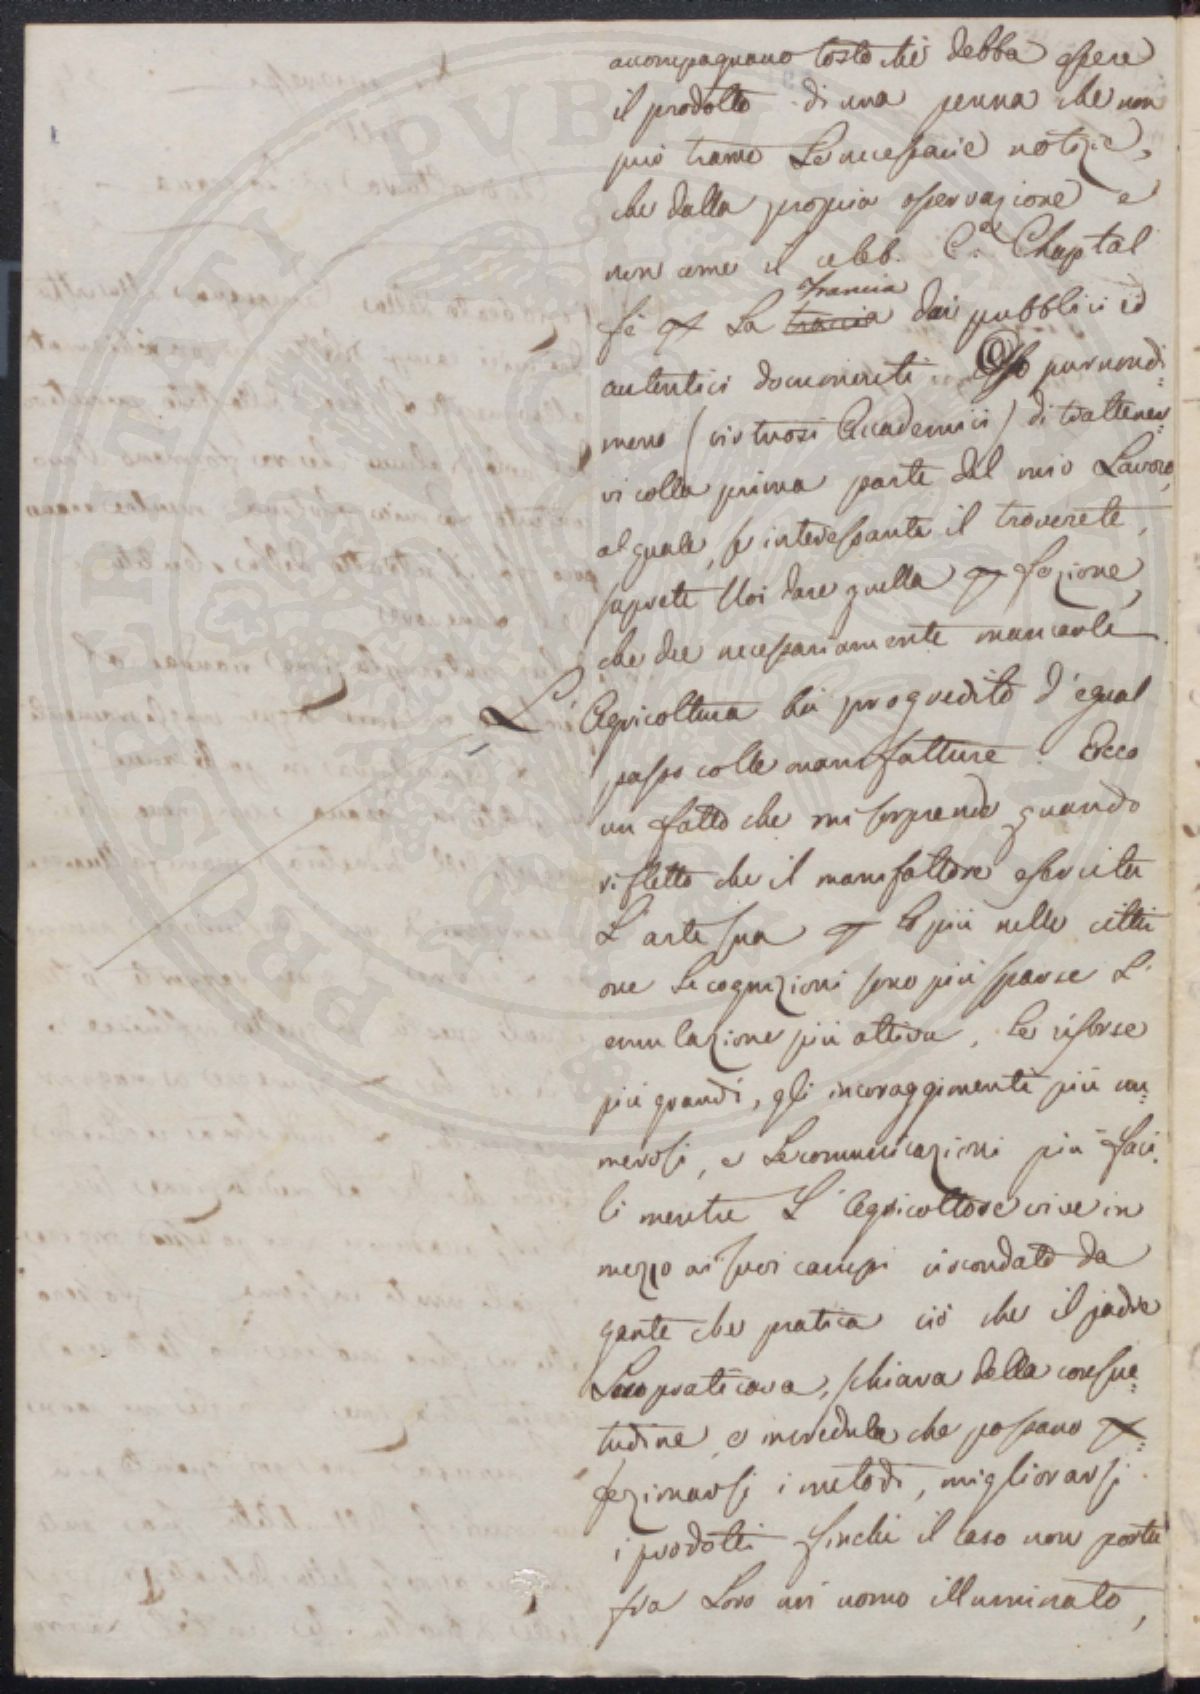 acompagnano tosto che debba essere
il prodotto di una penna che non
può trarre Le necessarie notizie,
che dalla propria osservazione e
non come il celeb. C.e Chaptal
fè La Francia
traccia dai pubblici ed
autentici documenti. Oso purnondi=
meno (virtuosi Accademici) di trattener=
vi colla prima parte del mio Lavoro,
al quale, se interessante il troverete,
saprete Voi dare quella p fezione,
che dee necessariamente mancarle.
L' Agricoltura hà progredito d'egual
passo colle manifatture. Ecco
un fatto che mi sorprende quando
rifletto che il manifattore esercita
L' arte sua p lo più nelle città
ove Le cognizioni sono più sparse L'
emulazione più attiva, Le risorse
più grandi, gli incoraggimenti più nu=
merosi, e Le comunicazioni più faci=
li mentre L' Agricoltore vive in
mezzo ai suoi campi circondato da
gente che pratica ciò che il padre
Suo praticava, schiava della consue=
tudine, e incredula che possano p=
fezionarsi i metodi, migliorarsi
i prodotti finchè il caso non porta
fra Loro un uomo illuminato,
PROSPERITATI PVBLIC